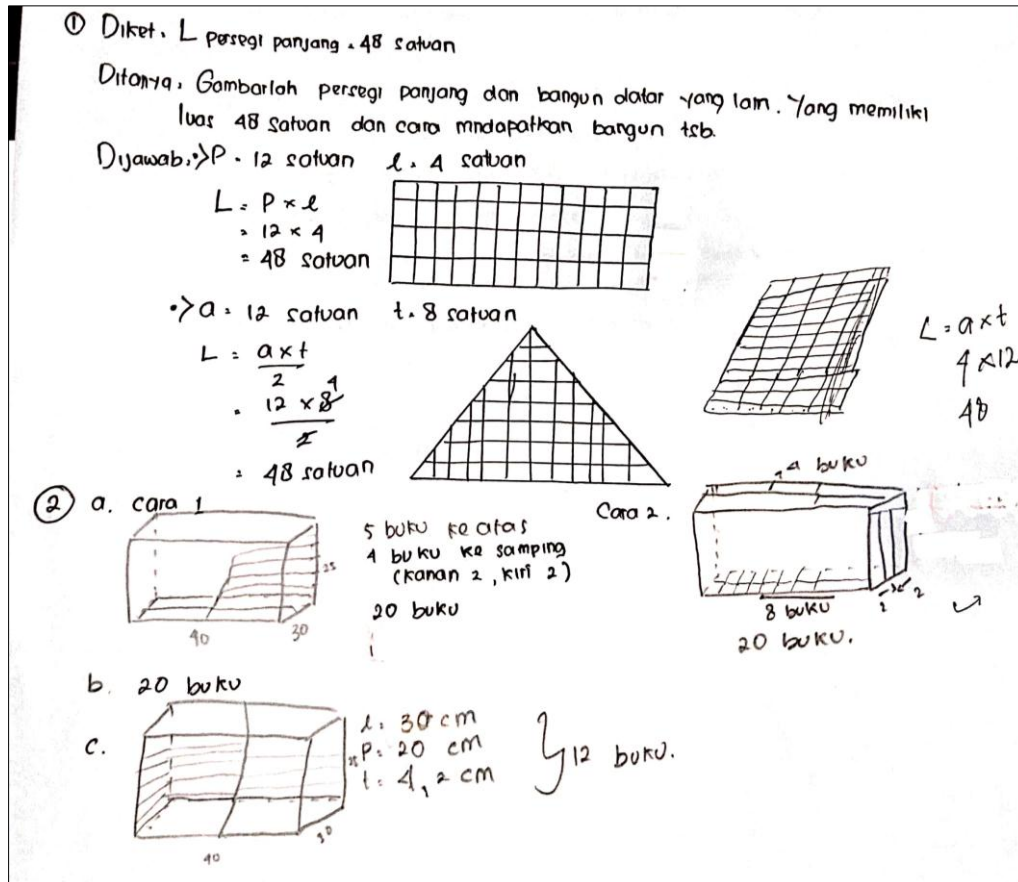 ① Diket. L persegi panjang = 48 satuan
Ditanya, Gambarlah persegi panjang dan bangun datar yang lain. Yang memiliki
luas 48 satuan dan cara mndapatkan bangun tsb.
Dijawab, •> P = 12 satuan l = 4 satuan
L = P x l
= 12 x 4
= 48 satuan
•> a = 12 satuan t = 8 satuan
L = a x t
2
= 12 x 8 4
2
= 48 satuan
L = a x t
4 x 12
48
② a. cara 1
25
40
30
5 buku ke atas
4 buku ke samping
(kanan 2, kiri 2)
20 buku
Cara 2.
4 buku
8 buku
2
2
20 buku.
b. 20 buku
c.
25
30
40
l = 30 cm
P = 20 cm
t = 4,2 cm
12 buku.